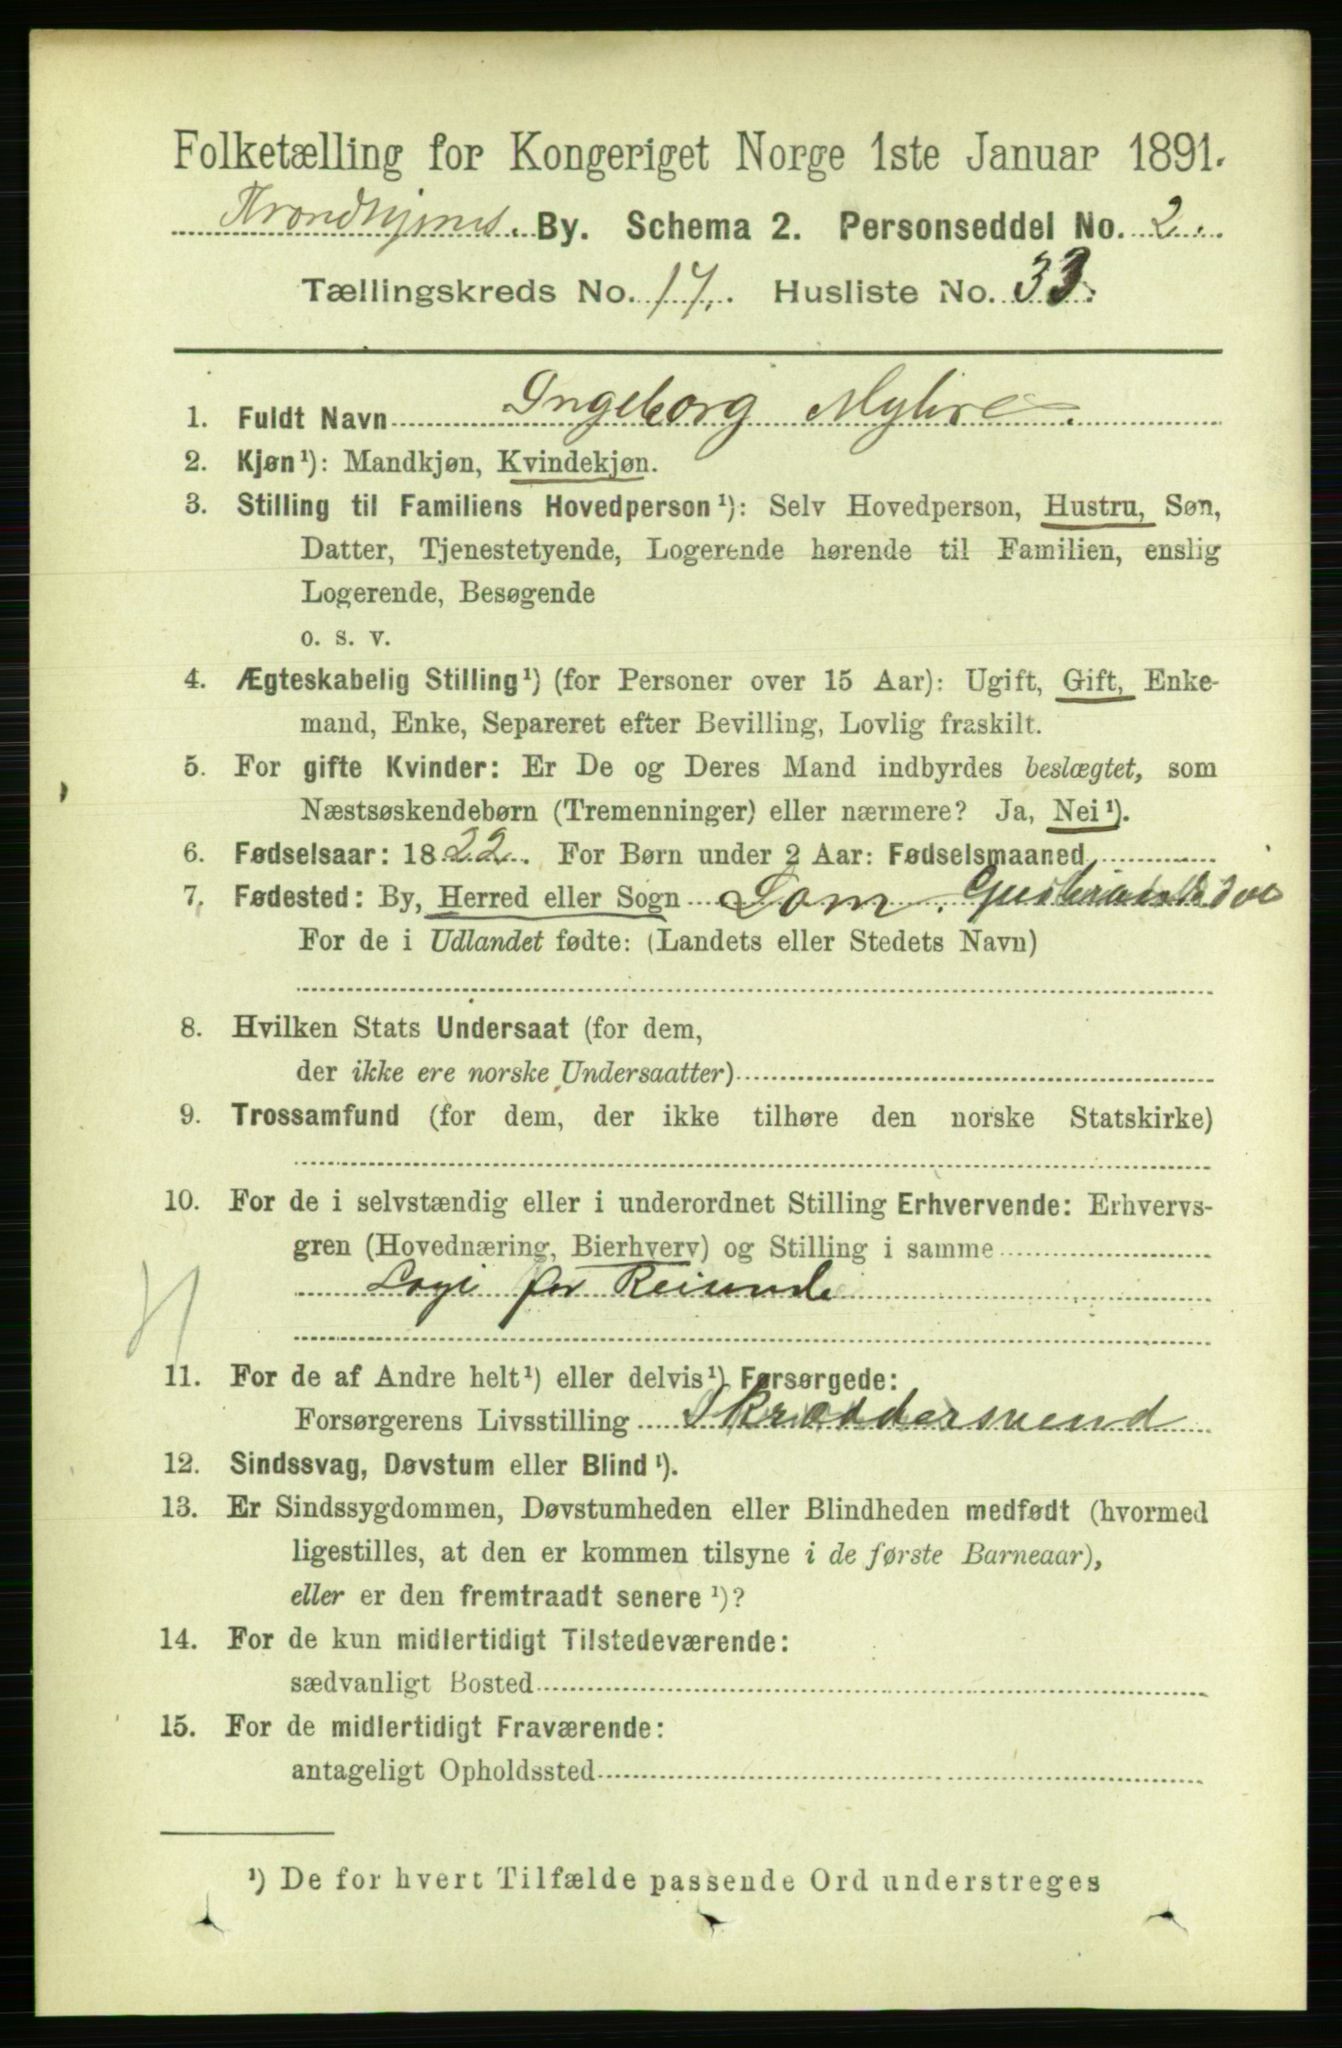 Folketælling for Kongeriget Norge 1ste Januar 1891.
Trondhjems By. Schema 2. Personseddel No. 2.
Tællingskreds No. 17. Husliste No. 33.
1. Fuldt Navn Ingeborg Myhre.
2. Kjøn¹): Mandkjøn, Kvindekjøn.
3. Stilling til Familiens Hovedperson¹): Selv Hovedperson, Hustru, Søn,
Datter, Tjenestetyende, Logerende hørende til Familien, enslig
Logerende, Besøgende
o. s. v.
4. Ægteskabelig Stilling¹) (for Personer over 15 Aar): Ugift, Gift, Enke-
mand, Enke, Separeret efter Bevilling, Lovlig fraskilt.
5. For gifte Kvinder: Er De og Deres Mand indbyrdes beslægtet, som
Næstsøskendebørn (Tremenninger) eller nærmere? Ja, Nei¹).
6. Fødselsaar: 1822. For Børn under 2 Aar: Fødselsmaaned
7. Fødested: By, Herred eller Sogn Lom.
For de i Udlandet fødte: (Landets eller Stedets Navn)
8. Hvilken Stats Undersaat (for dem,
der ikke ere norske Undersaatter)
9. Trossamfund (for dem, der ikke tilhøre den norske Statskirke)
10. For de i selvstændig eller i underordnet Stilling Erhvervende: Erhvervs-
gren (Hovednæring, Bierhverv) og Stilling i samme
Logi for Reisende
11. For de af Andre helt¹) eller delvis¹) Forsørgede:
Forsørgerens Livsstilling Skræddersvend
12. Sindssvag, Døvstum eller Blind¹).
13. Er Sindssygdommen, Døvstumheden eller Blindheden medfødt (hvormed
ligestilles, at den er kommen tilsyne i de første Barneaar),
eller er den fremtraadt senere¹)?
14. For de kun midlertidigt Tilstedeværende:
sædvanligt Bosted
15. For de midlertidigt Fraværende:
antageligt Opholdssted
¹) De for hvert Tilfælde passende Ord understreges